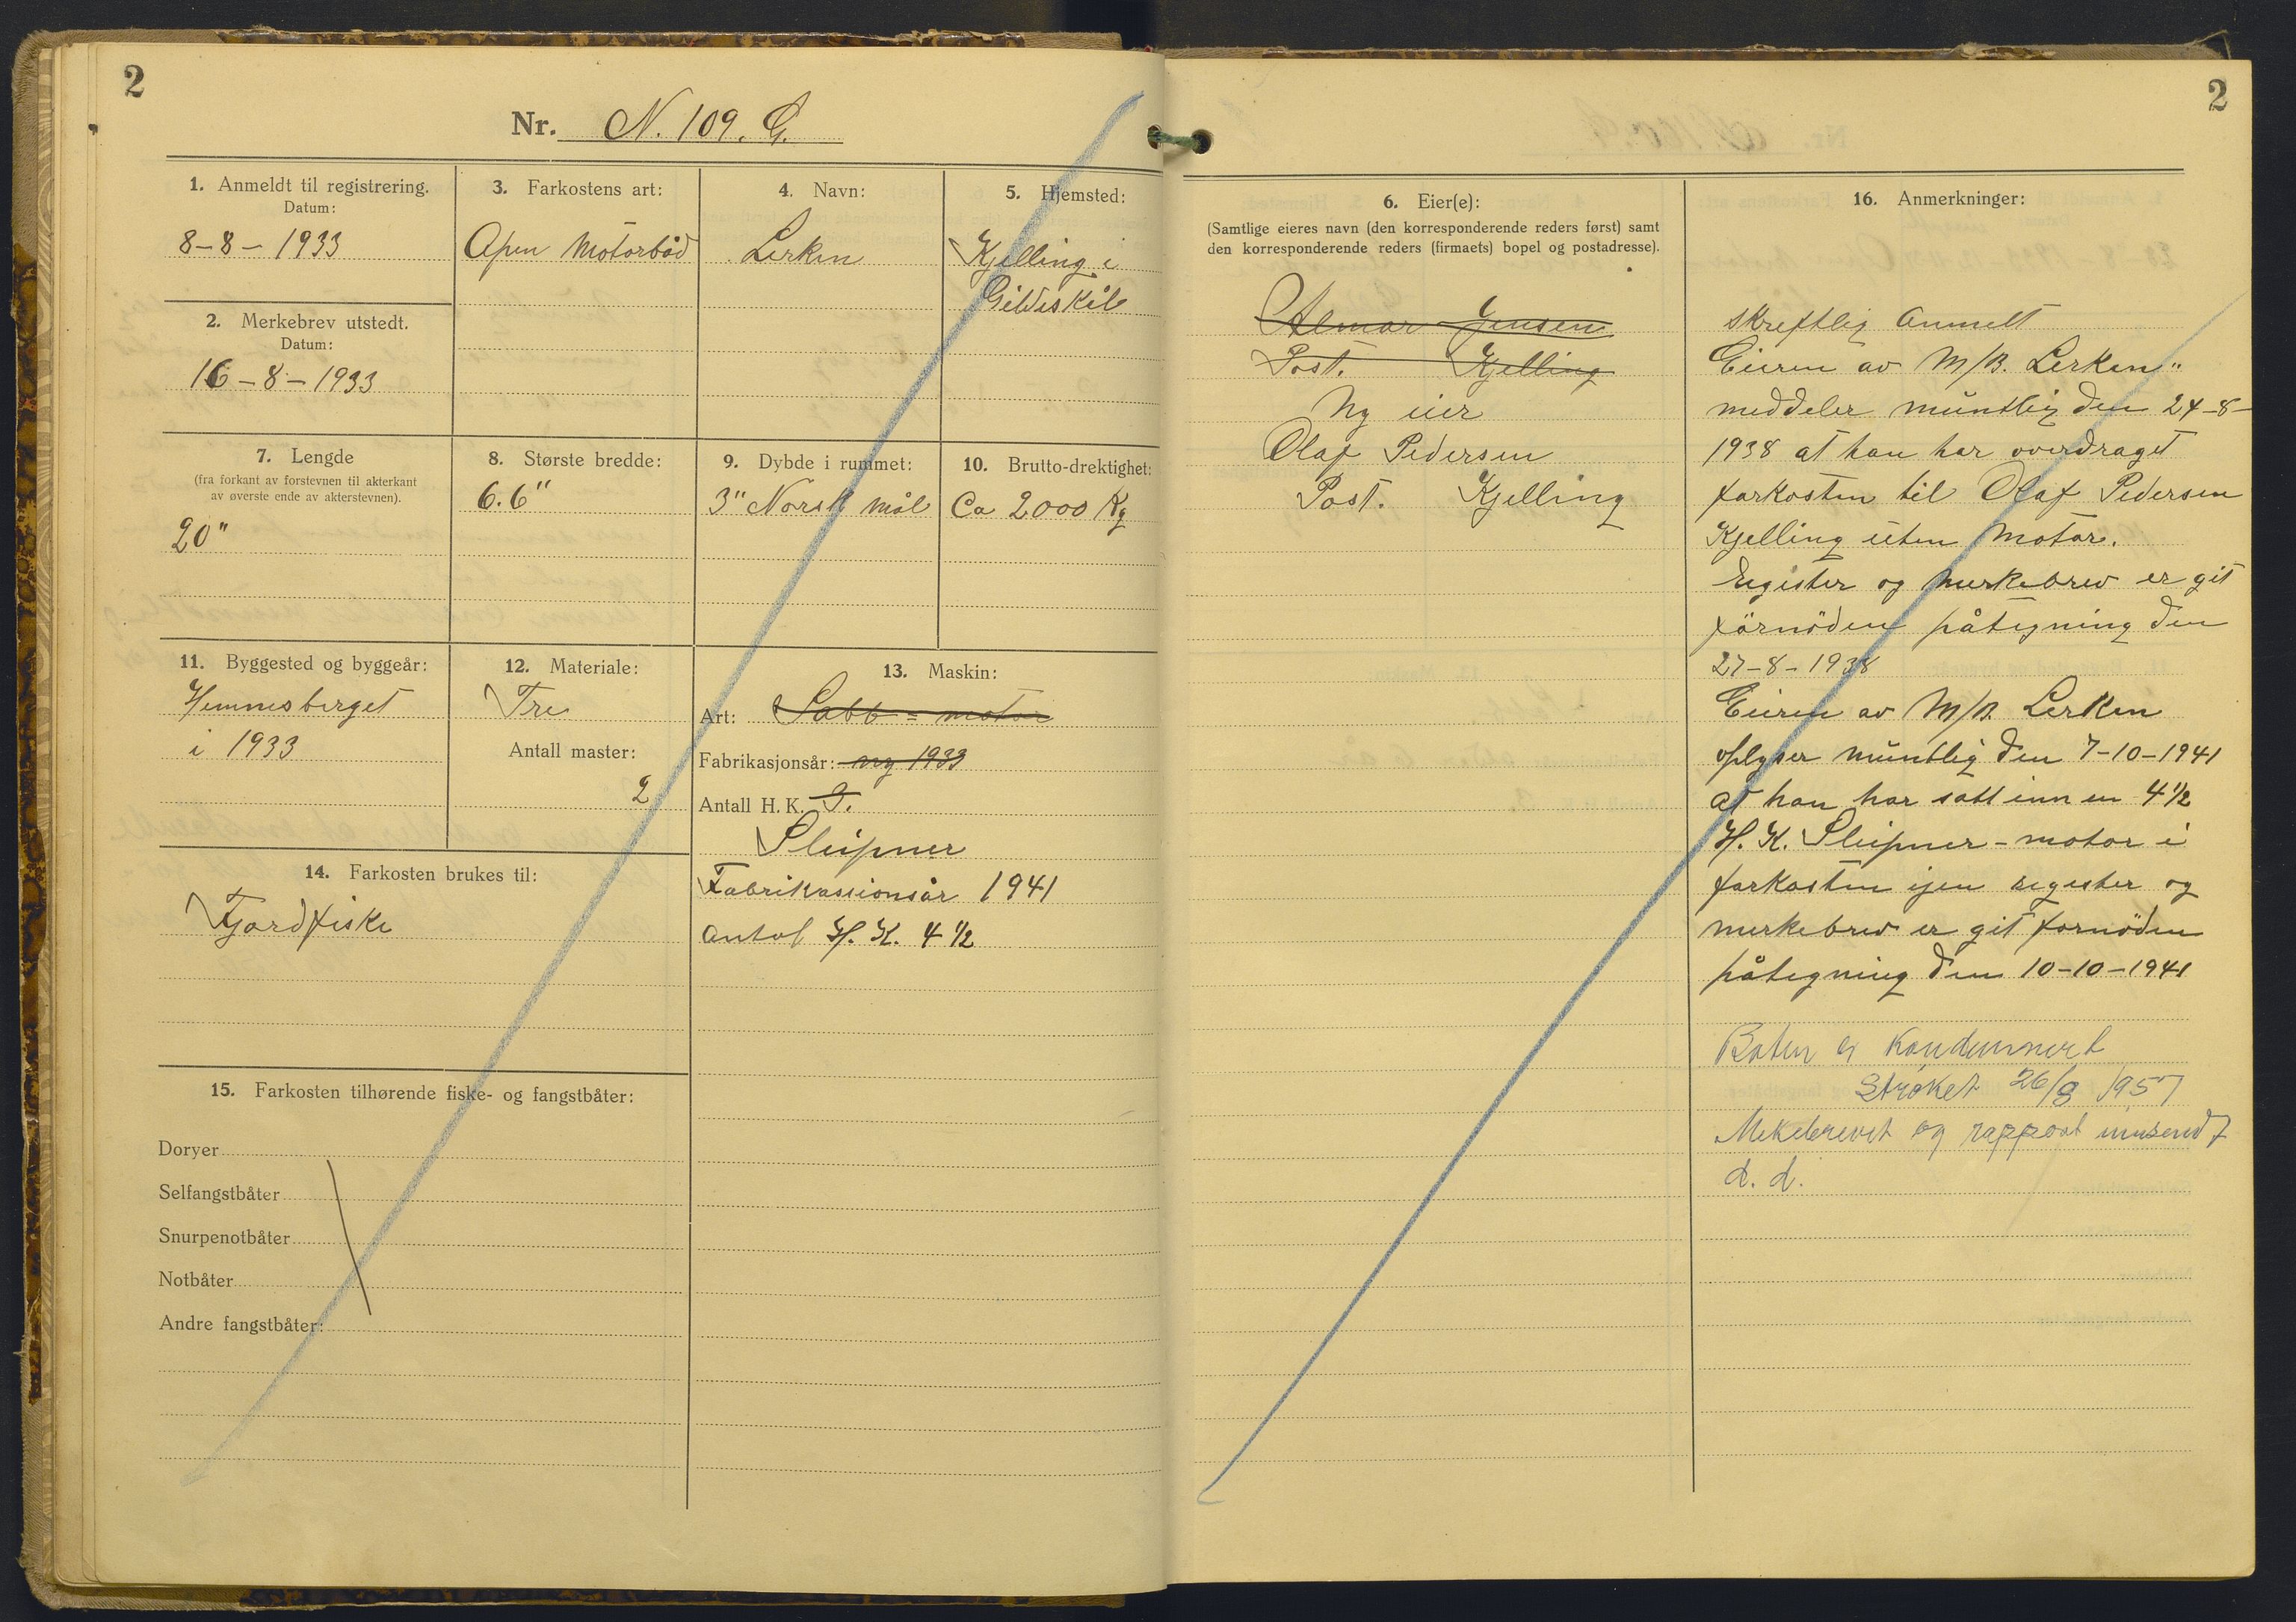 2
Nr. N. 109. G.
1. Anmeldt til registrering.
Datum:
8-8-1933
2. Merkebrev utstedt.
Datum:
16-8-1933
3. Farkostens art:
Åpen Motorbåd
4. Navn:
Lerken
5. Hjemsted:
Kjelling i
Gildeskål
7. Lengde
(fra forkant av forstevnen til akterkant
av øverste ende av akterstevnen).
20"
8. Største bredde:
6.6"
9. Dybde i rummet:
3" Norsk mål
10. Brutto-drektighet:
Ca 2000 Kg
11. Byggested og byggeår:
Hemnesberget
i 1933
12. Materiale:
Tre
Antall master:
2
13. Maskin:
Art: Sabb = motor
Fabrikasjonsår: ny 1933
Antall H. K.
Sleipner
Fabrikassionsår 1941
Antal H. K. 4 1/2
14. Farkosten brukes til:
Fjordfiske
15. Farkosten tilhørende fiske- og fangstbåter:
Doryer
Selfangstbåter
Snurpenotbåter
Notbåter
Andre fangstbåter:
2
6. Eier(e):
(Samtlige eieres navn (den korresponderende reders først) samt
den korresponderende reders (firmaets) bopel og postadresse).
Almar Jensen
Post. Kjelling
Ny eier
Olaf Pedersen
Post. Kjelling
16. Anmerkninger:
skreftlig Anmelt
Eieren av M/B. Lerken"
meddeler müntlig den 24-8-
1938 at han har overdraget
farkosten til Olaf Pedersen
Kjelling uten Motor.
Register og merkebrev er git
förnöden påtegning den
27-8-1938
Eieren av M/B. Lerken
oplyser müntlig den 7-10-1941
at han har satt inn en 4 1/2
H. K. Sleipner-motor i
farkosten igen register og
merkebrev er git fornöden
påtegning den 10-10-1941
Båten er kondemnert
Strøket 26/8 1957
Mekebrevet og rapport innsendt
d. d.